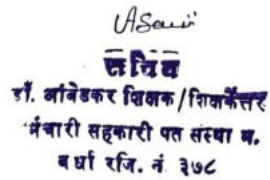 सचिव
डॉ. आंबेडकर शिक्षक/शिक्षकेत्तर
कर्मचारी सहकारी पत संस्था म.
वर्धा रजि. नं ३७८